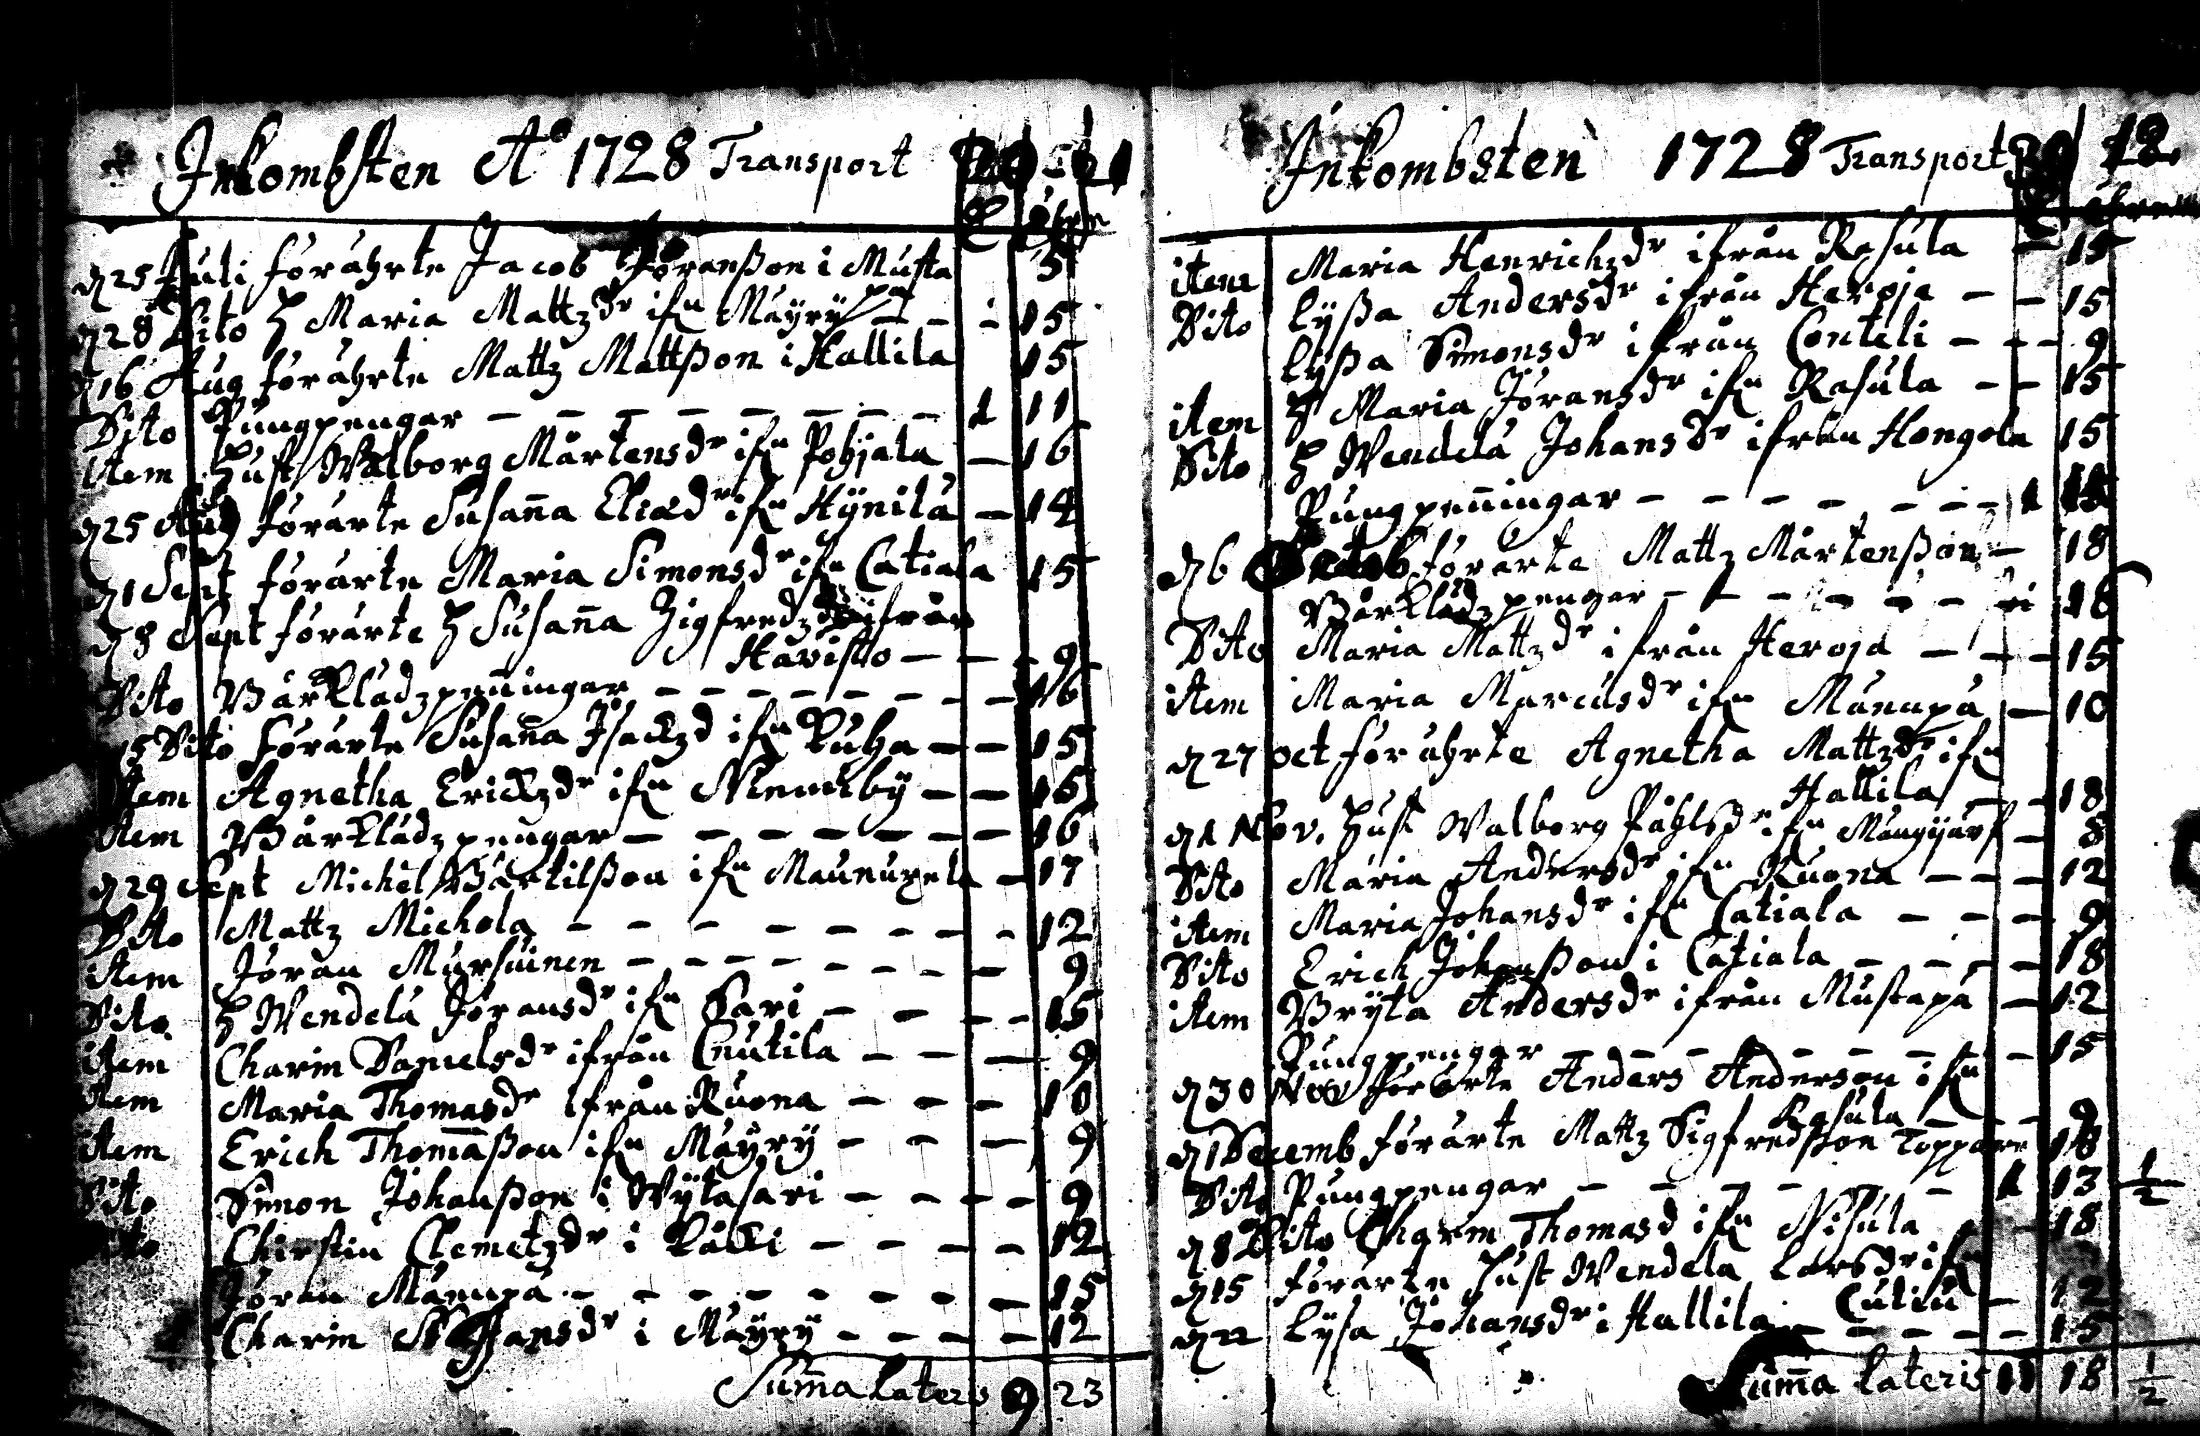 Inkombsten Aº 1728 Transport
25 Juli förährte Jacob Jöranßon i Musta 5
28 Dito H Maria Mattzdr ifn Mäyry 15
16 Aug förährte Mattz Mattßon i Hallila 15
Dito Pungpengar 1 11
item Hust Walborg Mårtensdr ifn Pohjala 16
25 Aug förärte Susana Eliædr ifn Hynilä 14
1 Sept förärte Maria Simonsdr ifn Catiala 15
8 Sept förärte H Susana Zigfredzdr ifrån
Havisto 9
Dito Bårklädzpeningar 16
15 Dito förärte Susana Isackzd ifn Kuha 15
item Agnetha Erickzdr ifn Niemiby 15
item Bårklädzpengar 16
29 Sept Michel Bärtilßon ifn Maunupela 17
Dito Mattz Michola 12
item Jöran Mursuinen 9
Dito H Wendela Jöransdr ifn Sari 15
item Charin Danielsdr ifrån Cnutila 9
item Maria Thomasdr ifrån Ruona 10
item Erich Thomaßon ifn Mäyry 9
Dito Simon Johanßon i Wytasari 9
Dito Chirstin Clemetzdr i Källi 12
Jöran Mänupä 15
Charin Jansdr i Mäyry 12
Suma Lateris 9 23
Inkombsten 1728 Transport
item Maria Henrichzdr ifrån Rasula 15
Dito Lyßa Andersdr ifrån Heroja 15
Lyßa Simonsdr ifrån Conteli 9
item H Maria Jöransdr ifn Rasula 15
Dito H Wendela Johansdr ifrån Hongola 15
Pungpeningar 1
6 förärte Mattz Mårtenßon 18
Bårklädzpengar 16
Dito Maria Mattzdr ifrån Heroja 15
item Maria Marcusdr ifn Mänupä 10
27 oct förährte Agnetha Mattzdr ifn
Hallila 18
1 Nov. Hust Walborg Påhlsdr ifn Mångijärf 8
Dito Maria Andersdr ifn Ruona 12
item Maria Johansdr ifn Catiala 9
Dito Erich Johanßon i Catiala 18
item Bryta Andersdr ifrån Mustapä 12
Pungpengar 15
30 Nov förärte Anders Anderson ifn
Rasula 9
1 Decemb förärte Mattz Sigfredßon Toppare 18
Dito Pungpengar 1 13 1/2
8 Dito Charin Thomasd ifn Nisula 18
15 förärte Hust Wendela Larsdr ifn
Cutiu 12
22 Lysa Johansdr i Hallila 15
Suma Lateris 11 18 1/2